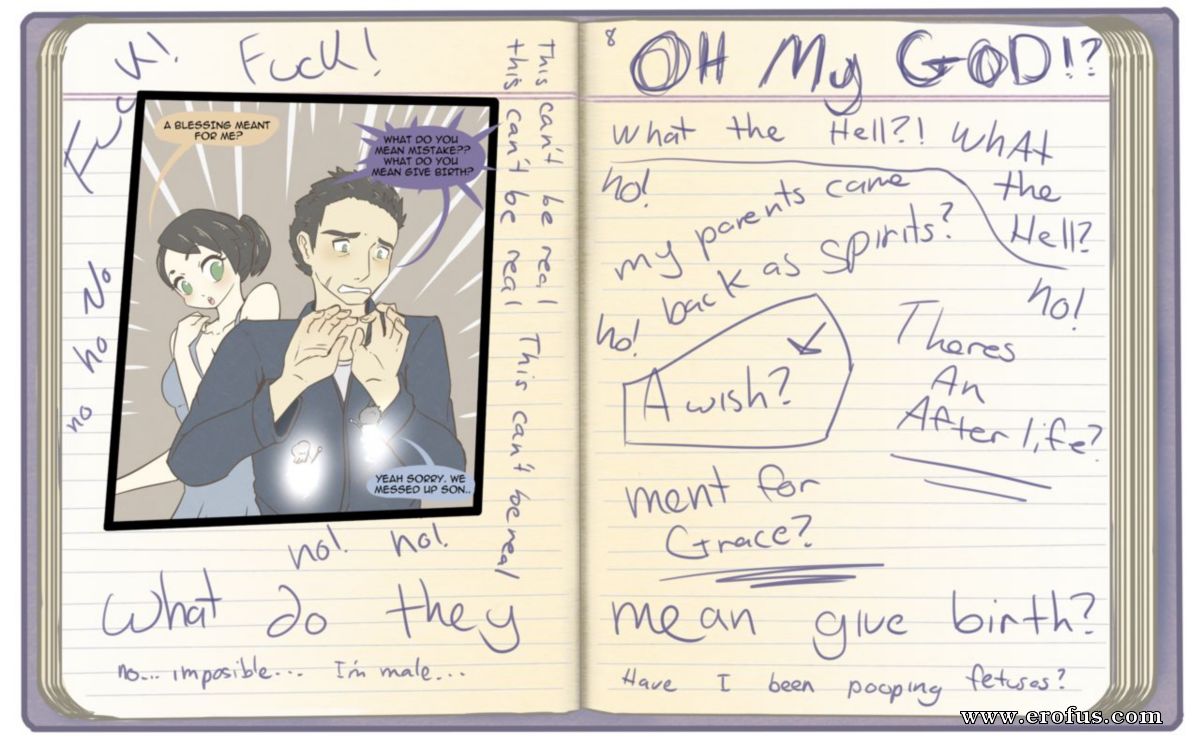 Fuck!
Fuck!
A BLESSING MEANT
FOR ME?
WHAT DO YOU
MEAN MISTAKE??
WHAT DO YOU
MEAN GIVE BIRTH?
YEAH SORRY. WE
MESSED UP SON..
This can't be real This can't be real
this can't be real
No
no
no
no! no!
What do they
no... imposible... I'm male...
8
OH My GOD!?
What the Hell?!
WhAt
the
Hell?
no!
no!
my parents came
back as spirits?
no!
A wish?
Theres
An
After life?
ment for
Grace?
mean give birth?
Have I been pooping fetuses?
www.erofus.com